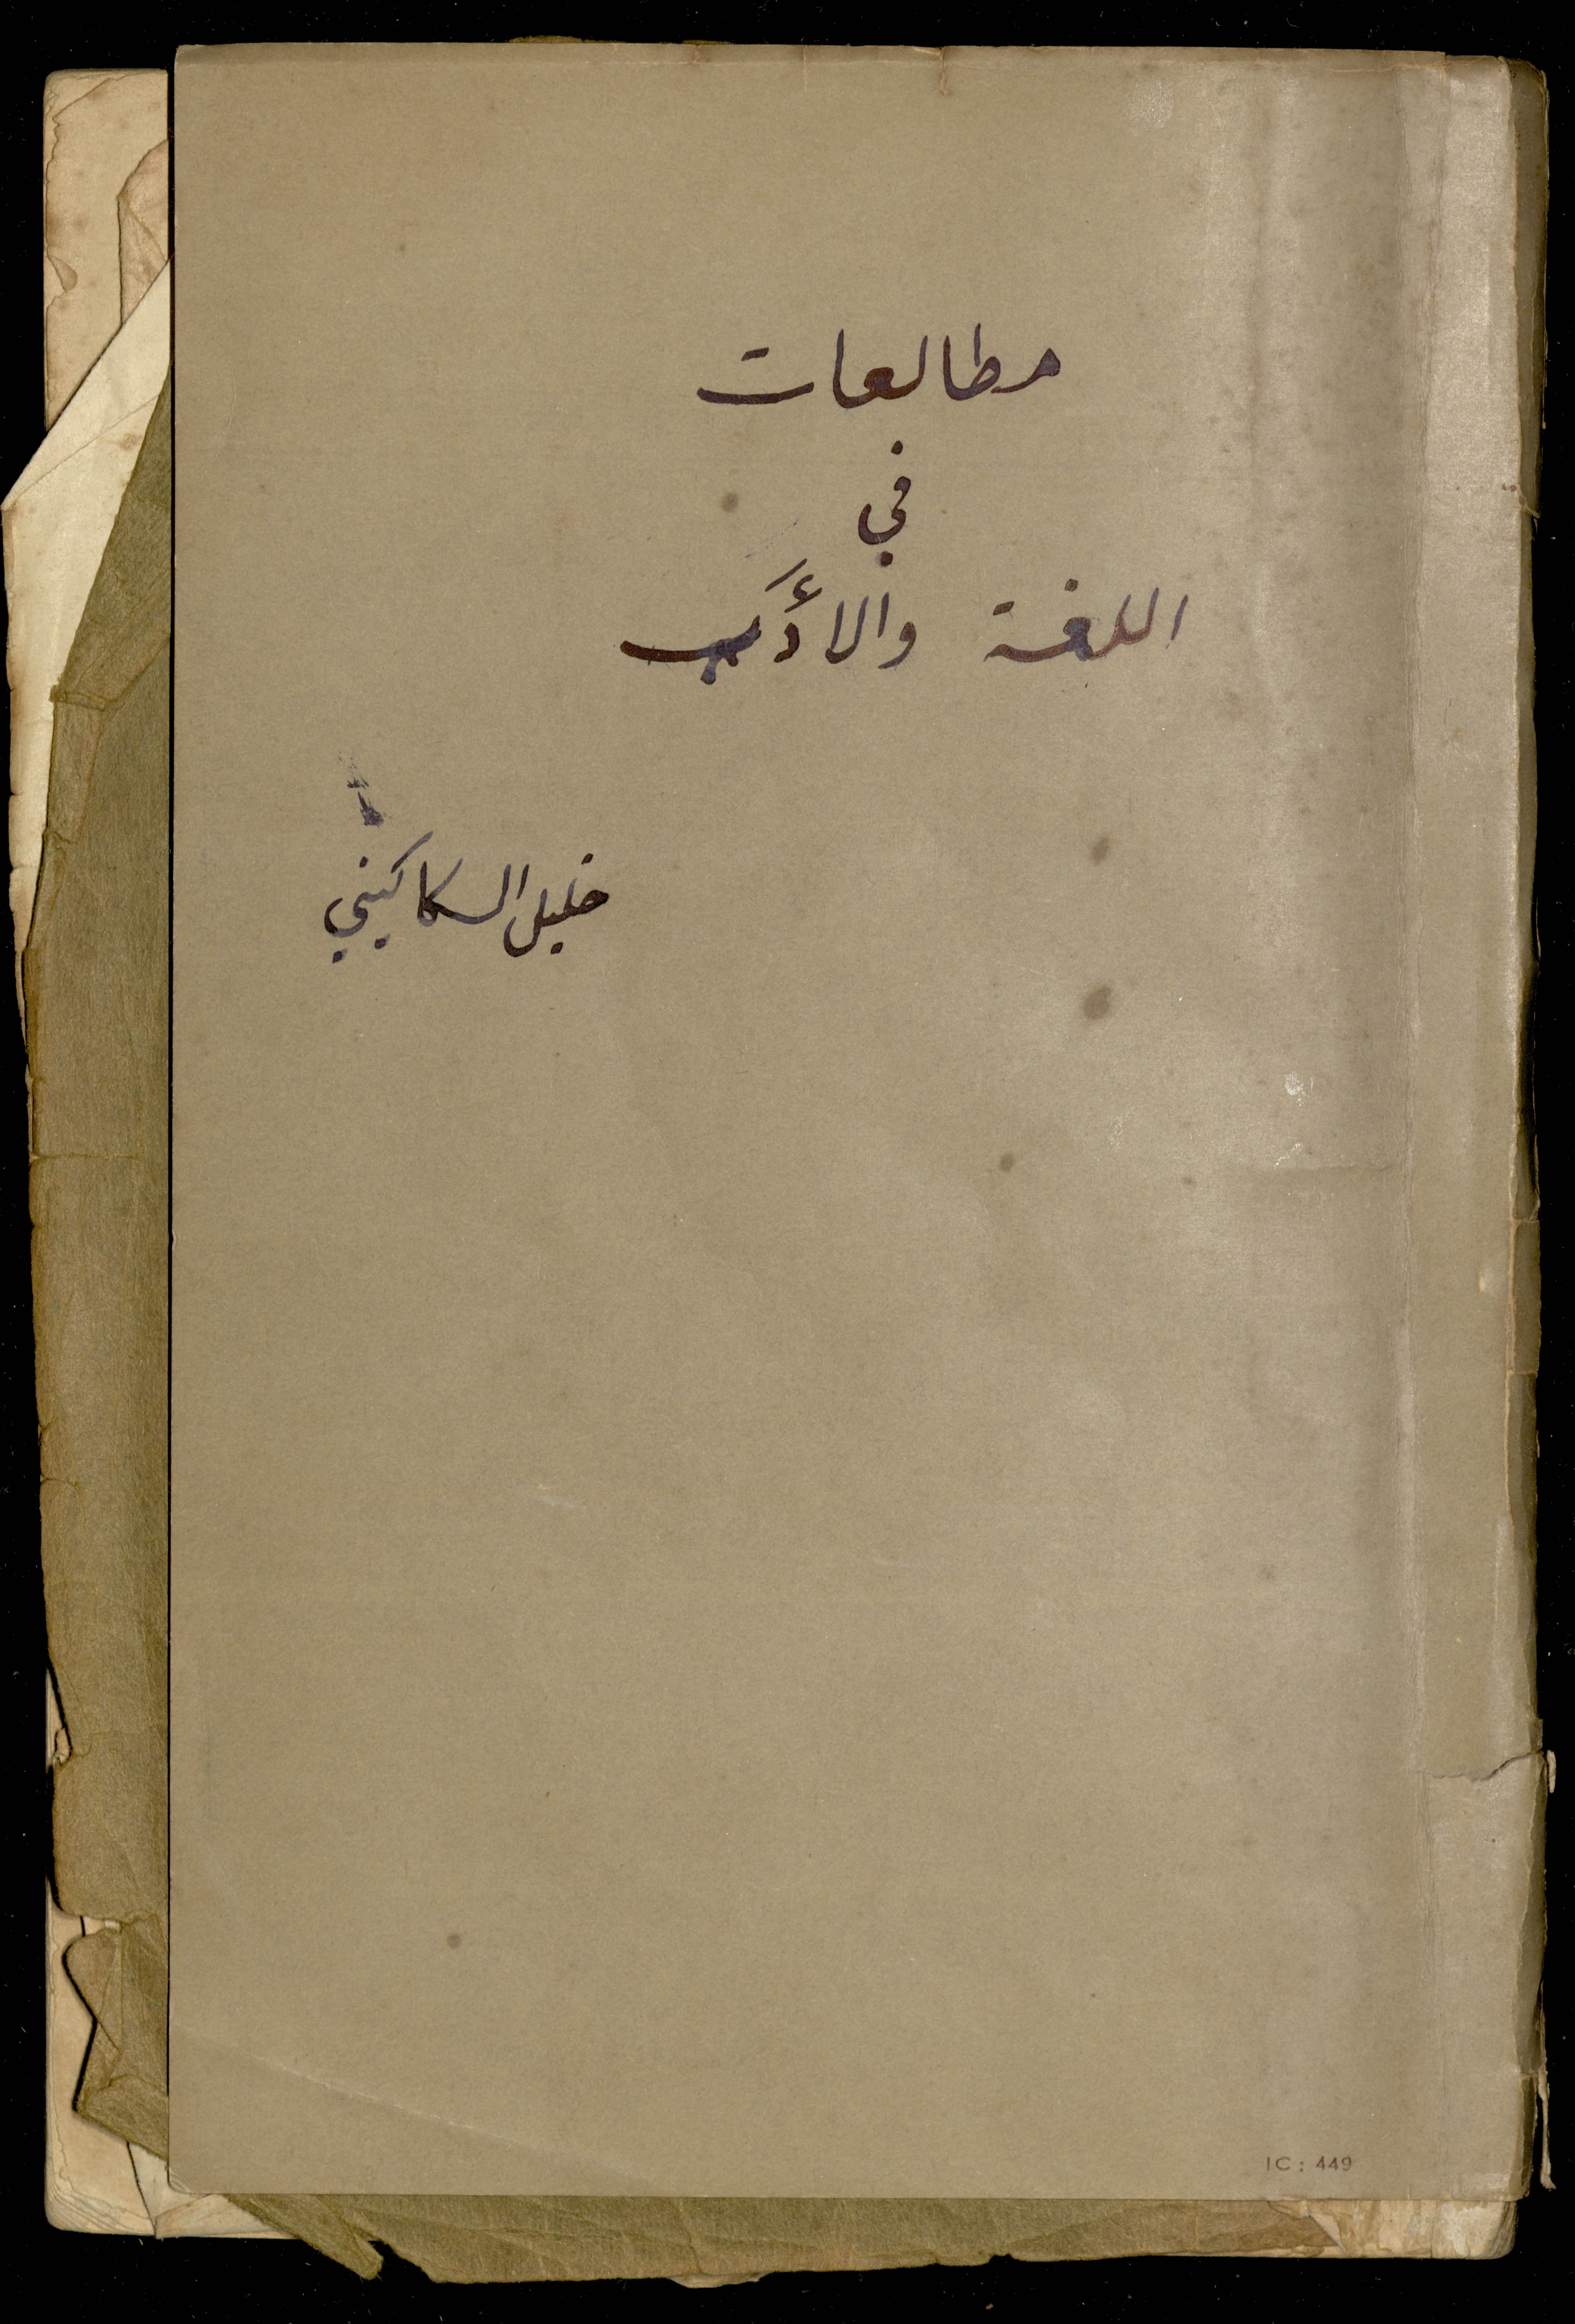 مطالعات
في
اللغة والأدَب
خليل السكاكيني
IC : 449